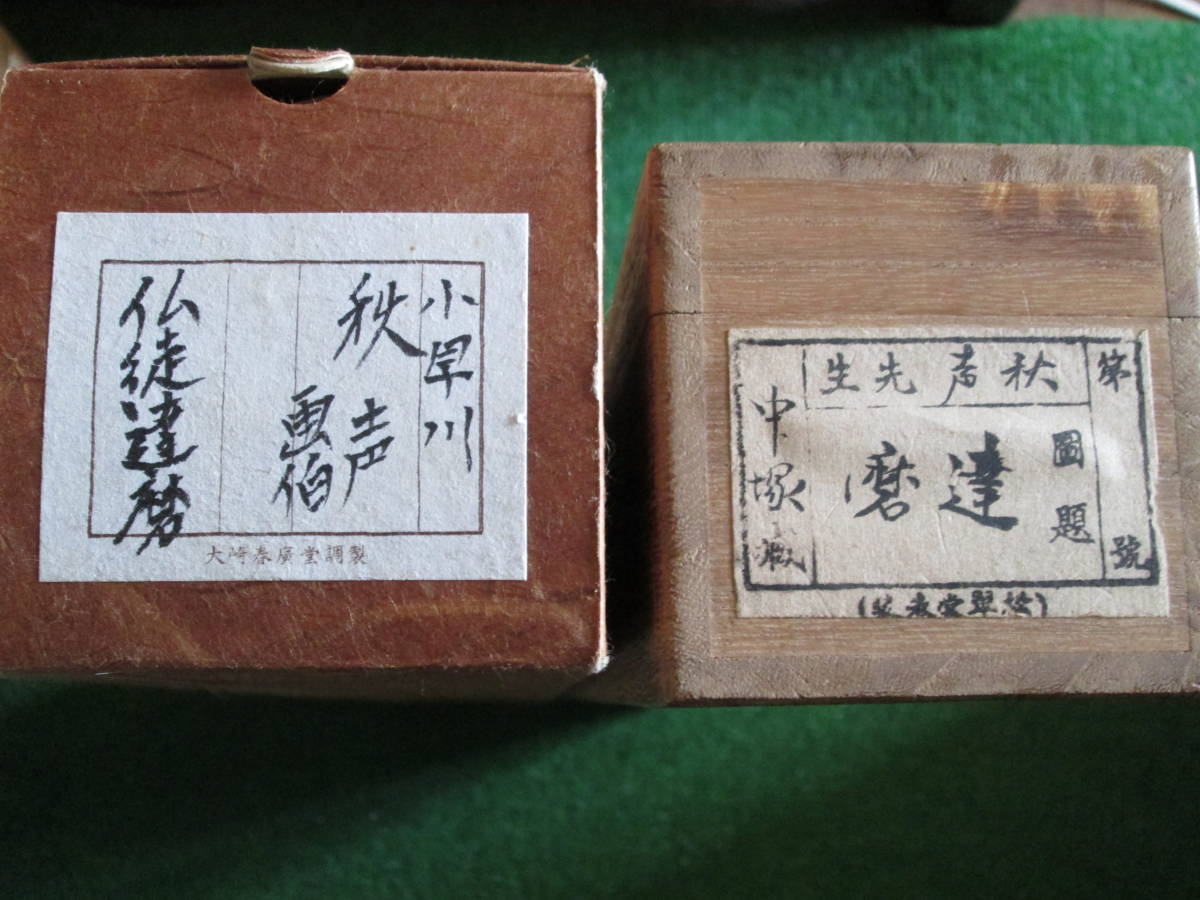 小早川
秋声
画伯
仏徒達磨
大崎春廣堂調製
第 號
秋声先生
圖題
達磨
中塚